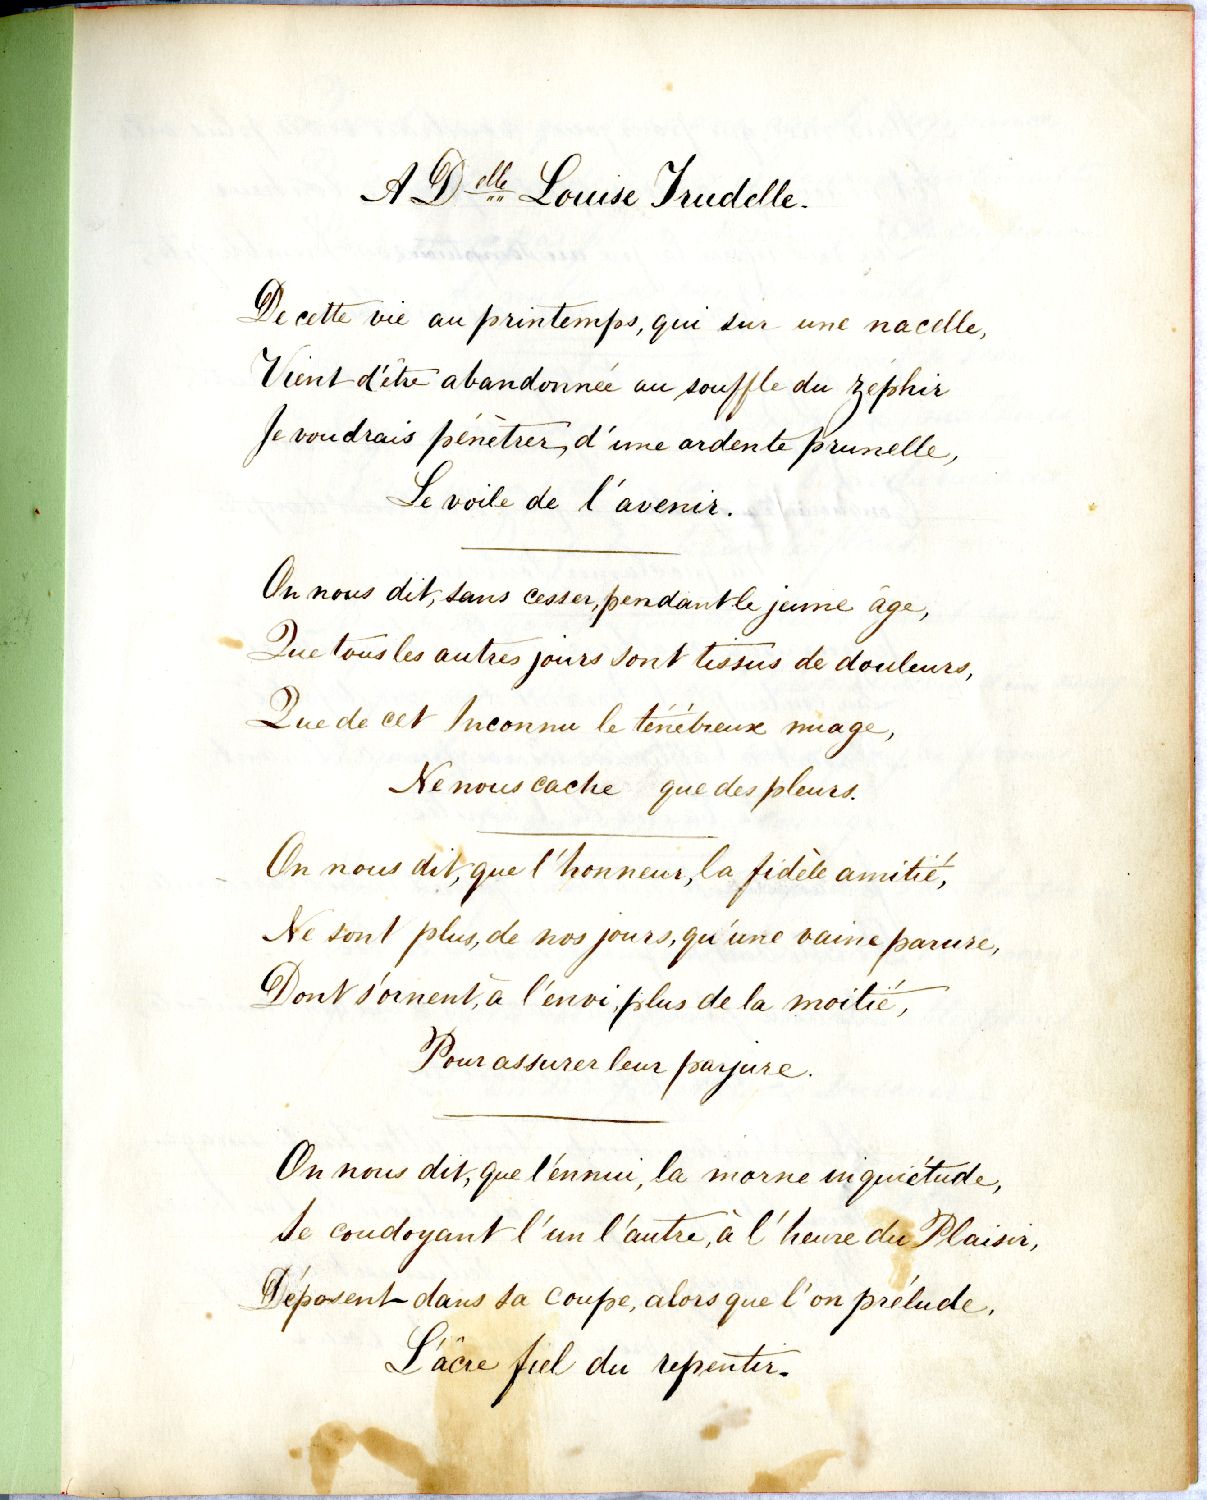 A Delle Louise Trudelle.
De cette vie au printemps, qui sur une nacelle,
Vient d'être abandonnée au souffle du zéphir
Je voudrais pénétrer, d'une ardente prunelle,
Le voile de l'avenir.
On nous dit, sans cesser, pendant le jeune âge,
Que tous les autres jours sont tissus de douleurs,
Que de cet Inconnu le ténébreux nuage,
Ne nous cache que des pleurs.
On nous dit, que l'honneur, la fidèle amitié,
Ne sont plus, de nos jours, qu'une vaine parure,
Dont s'ornent, à l'envi, plus de la moitié,
Pour assurer leur parjure.
On nous dit, que l'ennui, la morne inquiétude,
Se coudoyant l'un l'autre, à l'heure du Plaisir,
Déposent dans sa coupe, alors que l'on prélude,
L'âcre fiel du repentir.